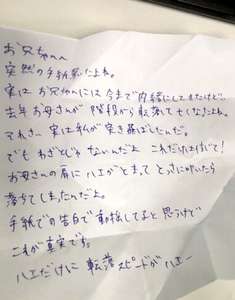 お兄ちゃんへ
突然の手紙驚いたよね。
実はお兄ちゃんには今まで内緒にしてきたけど、
去年お母さんが階段から転落して亡くなったよね。
あれさ、実は私が突き飛ばしたんだ。
でもわざとじゃないんだよ これだけは信じて!
お母さんの肩にハエがとまってとっさに叩いたら
落ちてしまったんだよ。
手紙での告白で動揺してると思うけど
これが真実です。
ハエだけに転落スピードがハエー